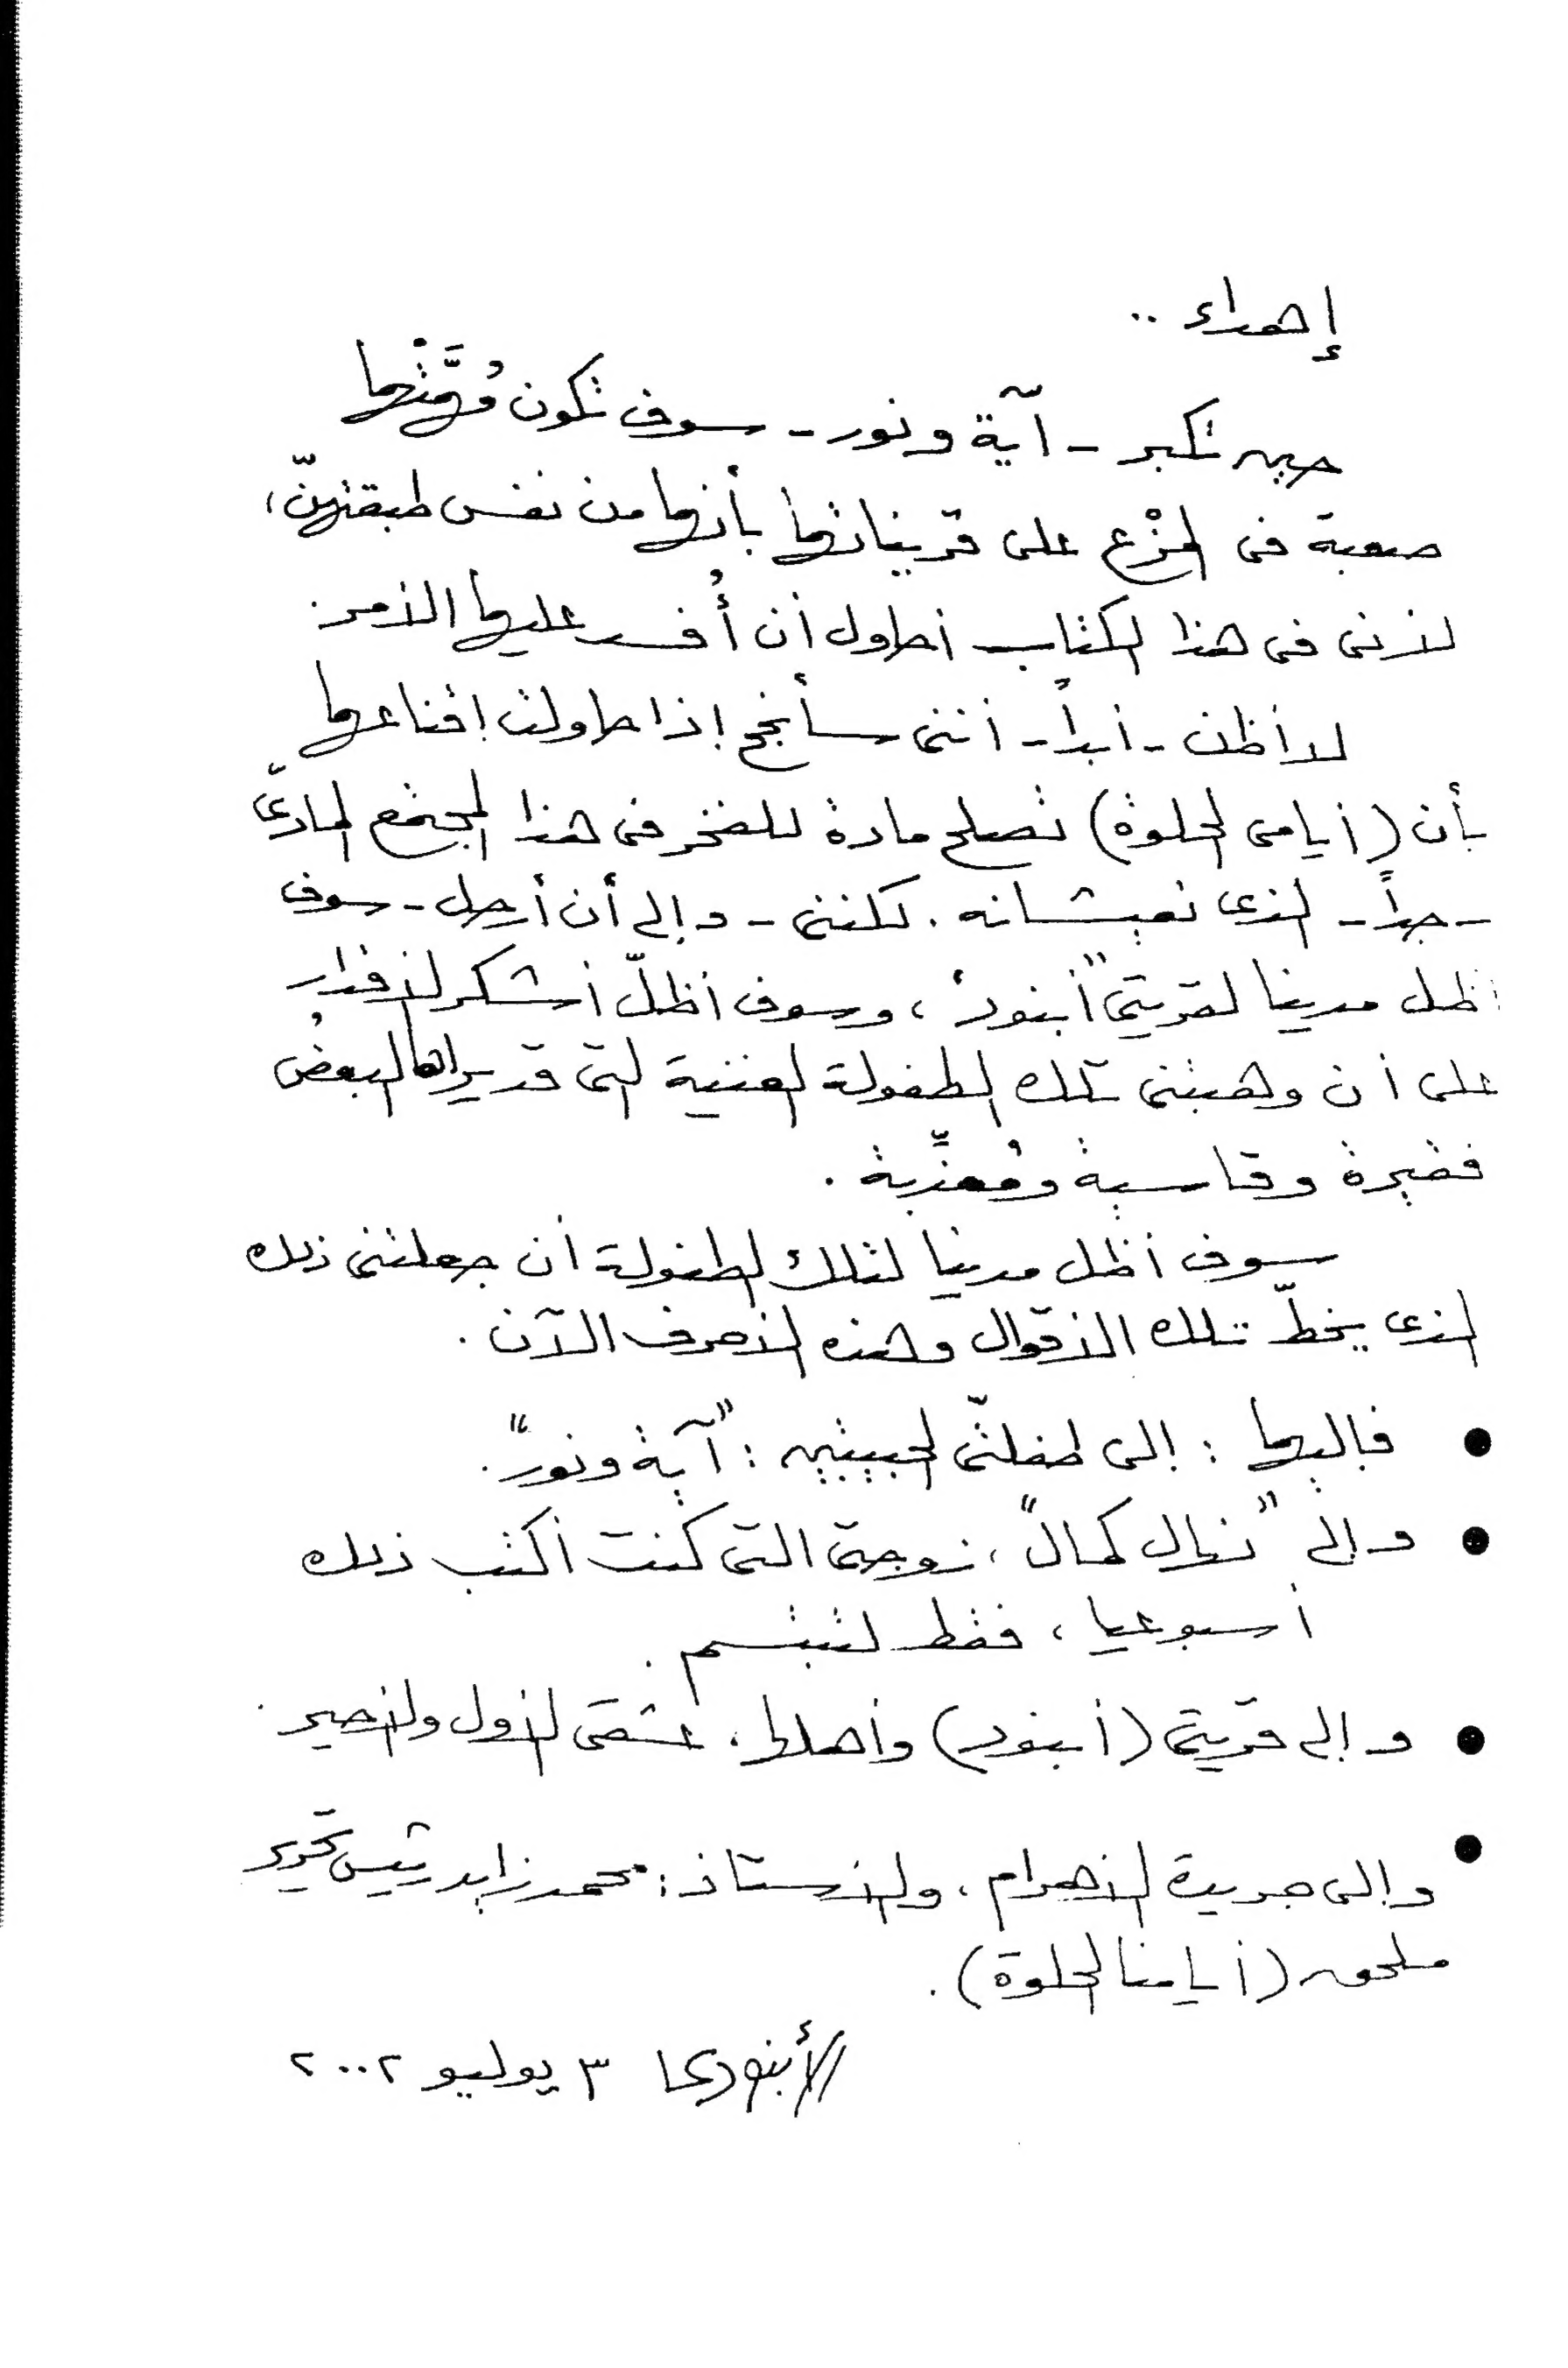 إهداء ..
حين تكبر - آية ونور - سوف تكون مُهمَّتْهما
صعبة فى المزْع على قريناتهما بأنهما من نفس طبقتهنّ،
لأننى فى هذا الكتاب أحاول أن أُفسد عليهما الأمر.
لا أظن - أبداً - أننى سأنجح إذا حاولت إقناعهما
بأن (أيامى الحلوة) تصلح مادة للفخر فى هذا المجتمع المادىّ
- جداً - الذى تعيشانه. لكننى - وإلى أن أرحل - سوف
أظل مدينا لقريتى "أبنود"، وسوف أظلّ أشكر الأقدار
على أن وهبتنى تلك الطفولة الغنية التى قد يراها البعضُ
فقيرة وقاسية ومُعذِّبة.
سوف أظل مدينا لتلك الطفولة أن جعلتنى ذلك
الذى يخطّ تلك الأقوال وهذه الأحرف الآن.
● فإليهما : إلى طفلتىّ الحبيبتين : "آية ونور".
● وإلى "نهال كمال"، زوجتى التى كنت أكتب ذلك
أسبوعيا، فقط لتبتسم.
● وإلى قريتى (أبنود) وأهلها، عشقى الأول والأخير.
● وإلى جريدة الأهرام، والأستاذ: محمد زايد رئيس تحرير
ملحق (أيامنا الحلوة).
الأبنودى ٣ يوليو ٢٠٠٢